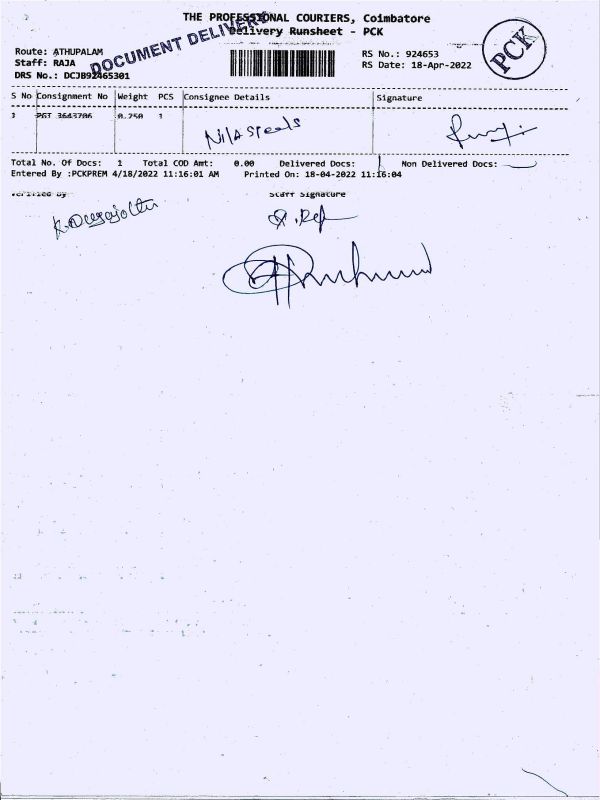 THE PROFESSIONAL COURIERS, Coimbatore
Delivery Runsheet - PCK
DOCUMENT DELIVERY
PCK
Route: ATHUPALAM
Staff: RAJA
DRS No.: DCJB92465301
RS No.: 924653
RS Date: 18-Apr-2022
S No Consignment No Weight PCS Consignee Details Signature
1 PGT 3643706 0.250 1
Nila Steels
Total No. Of Docs: 1 Total COD Amt: 0.00 Delivered Docs: 1 Non Delivered Docs:
Entered By :PCKPREM 4/18/2022 11:16:01 AM Printed On: 18-04-2022 11:16:04
Verified By Staff Signature